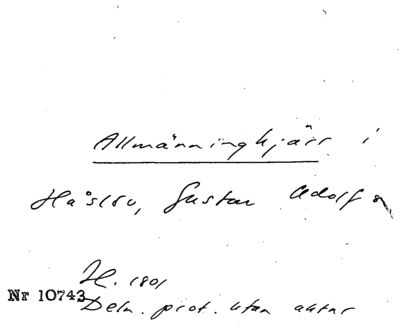 Allmänningkjärr i
Håslöv, Gustav Adolf s
H. 1801
Nr 10743
Deln. prot. utan aktnr